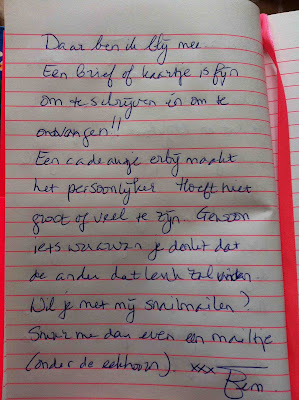 Daar ben ik blij mee.
Een brief of kaartje is fijn
om te schrijven en om te
ontvangen!!
Een cadeautje erbij maakt
het persoonlijker. Hoeft niet
groot of veel te zijn. Gewoon
iets waarvan je denkt dat
de ander dat leuk zal vinden.
Wil je met mij snailmailen?
Stuur me dan even een mailtje
(onder de eekhoorn). xxx